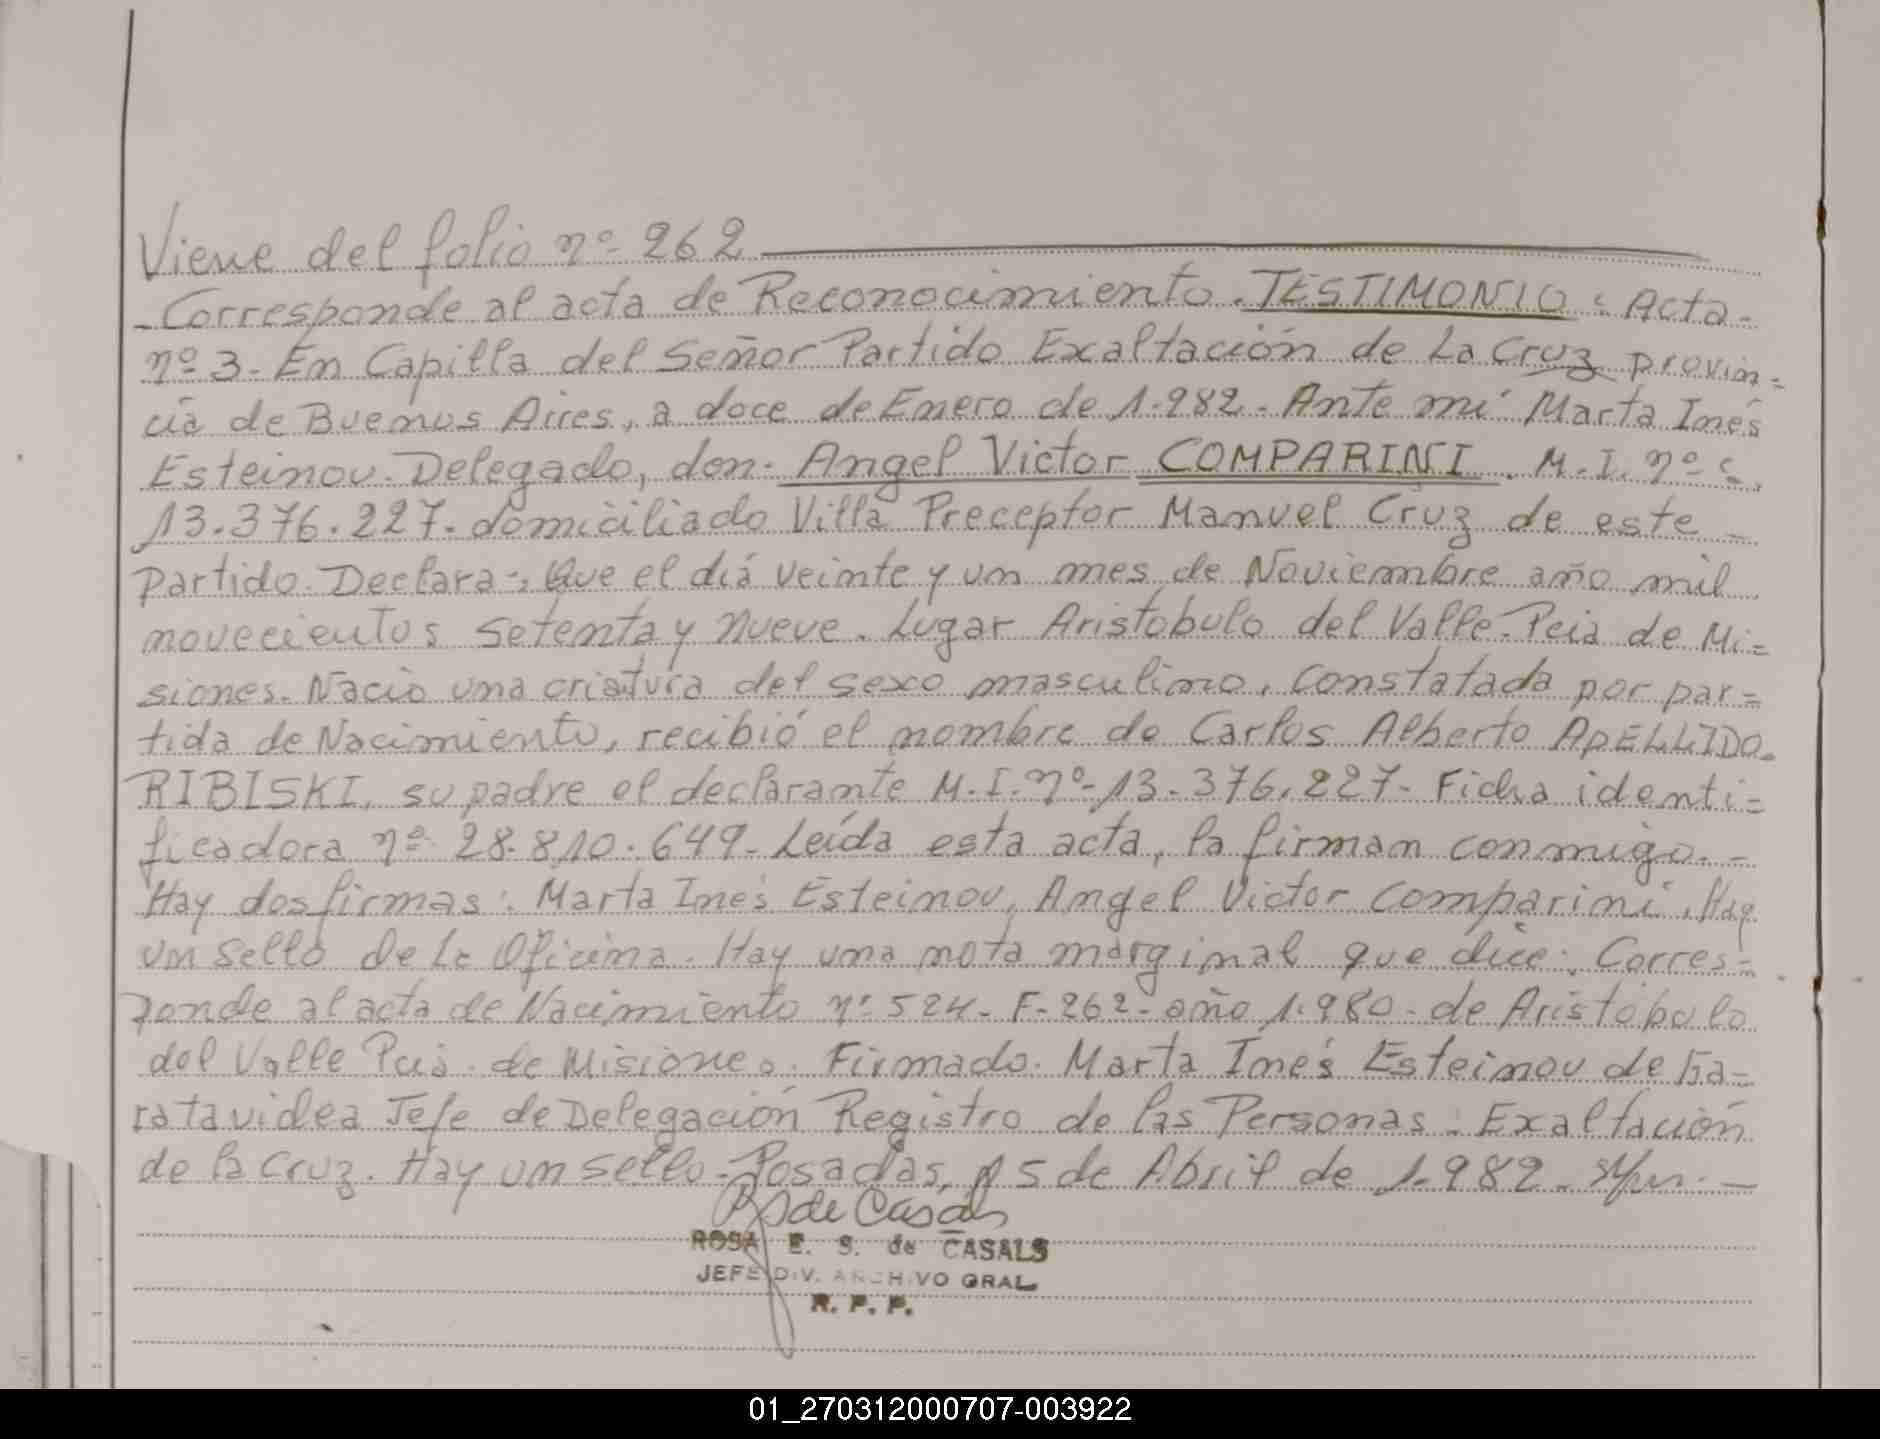 Viene del folio nº 262
- Corresponde al acta de Reconocimiento. TESTIMONIO: Acta -
nº 3 - En Capilla del Señor Partido Exaltación de La Cruz provin=
cia de Buenos Aires, a doce de Enero de 1.982 - Ante mi Marta Inés
Esteinou. Delegado, don. Angel Victor COMPARINI. M.I. nº
13.376.227. domiciliado Villa Preceptor Manuel Cruz de este -
partido. Declara-: Que el diá veinte y un mes de Noviembre año mil
novecientos setenta y nueve. Lugar Aristobulo del Valle. Pcia de Mi=
siones. Nacio una criatura del sexo masculino, constatada por par=
tida de Nacimiento, recibió el nombre de Carlos Alberto APELLIDO.
RIBISKI, su padre el declarante M.I. nº 13.376.227 - Ficha identi=
ficadora nº 28.810.649 - Leída esta acta, la firman conmigo. -
Hay dos firmas: Marta Inés Esteinou, Angel Victor Comparini. Hay
un sello de la Oficina. Hay una nota marginal que dice: Corres=
ponde al acta de Nacimiento nº 524 - F - 262 - año 1.980 - de Aristobulo
del Valle Pcia. de Misiones. Firmado. Marta Inés Esteinou de Ga=
ratavidea Jefe de Delegación Registro de las Personas: Exaltación
de la Cruz. Hay un sello - Posadas, 15 de Abril de 1.982 -
de Casals
ROSA E. S. de CASALS
JEFE DIV. ARCHIVO GRAL
R. P. P.
01_270312000707-003922